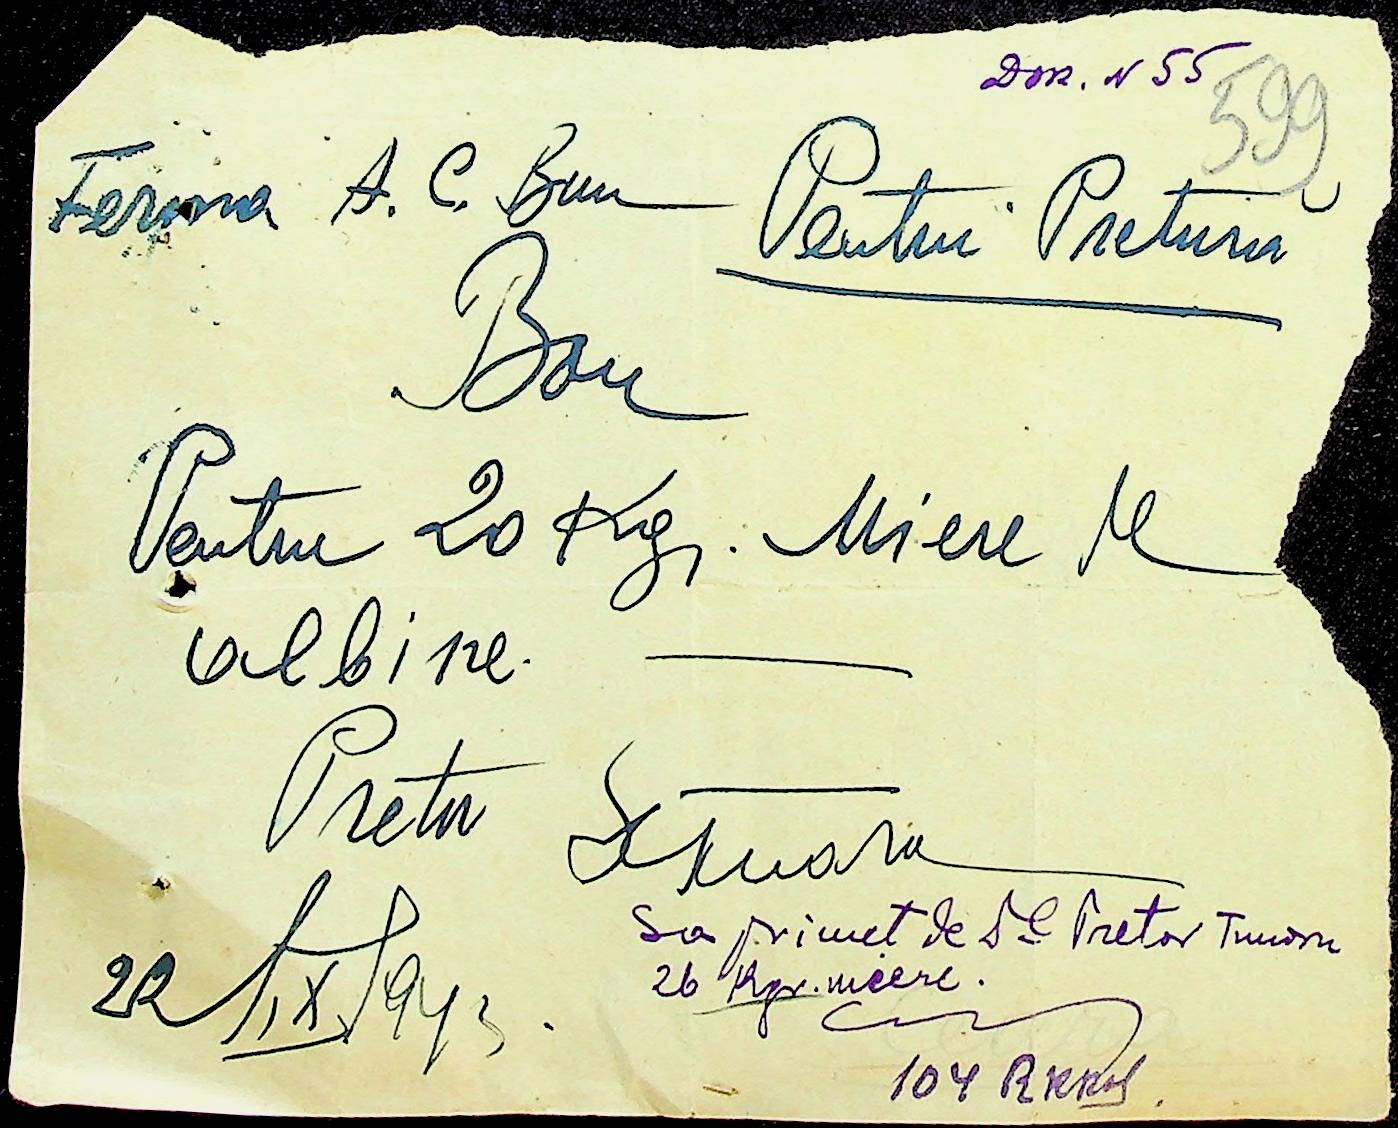 Dok. N 55
599
Ferma A. C. Bun
Pentru Pretura
Bon
Pentru 20 Kgr. Miere de
albine.
Pretor
22/IX/943.
S'a primit de Dl Pretor
26 Kgr. miere.
104